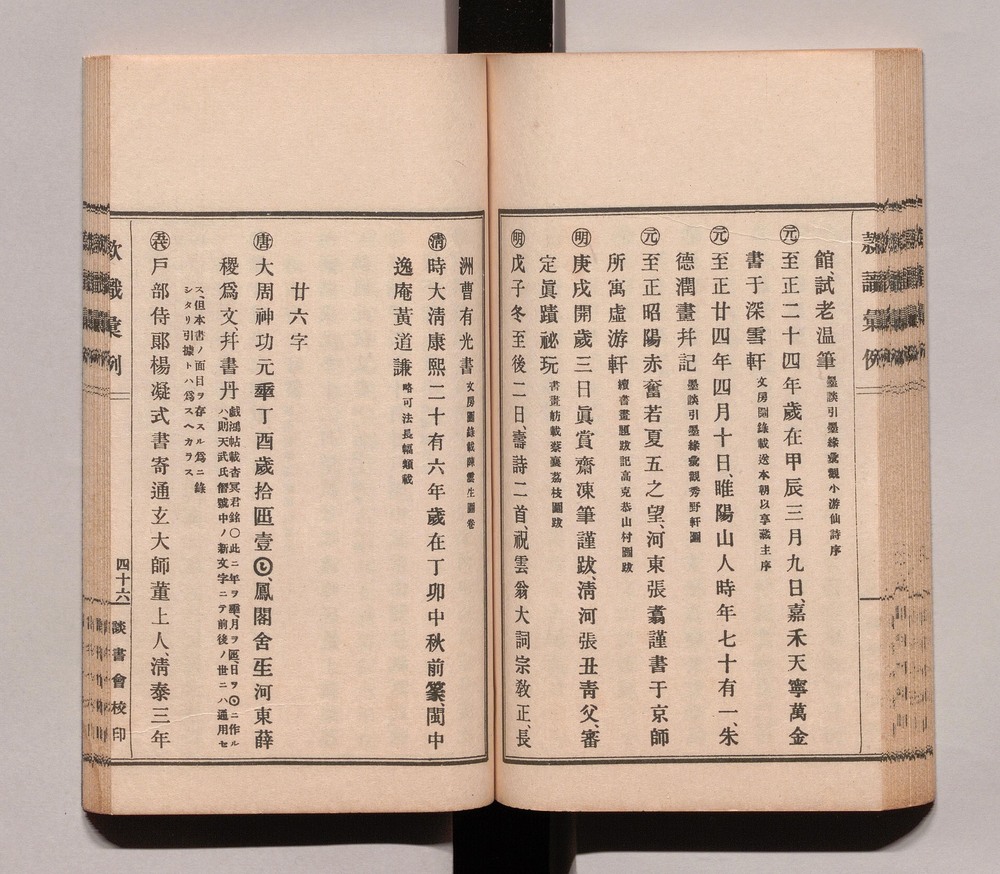 館、試老溫筆 墨談引墨緣彙觀小游仙詩序
元 至正二十四年歲在甲辰三月九日、嘉禾天寧萬金
書于深雪軒 文房圖錄載送本朝以享藏主序
元 至正廿四年四月十日、睢陽山人時年七十有一、朱
德潤畫幷記 墨談引墨緣彙觀秀野軒圖
元 至正昭陽赤奮若夏五之望、河東張翥謹書于京師
所寓虛游軒 續書畫題跋記高克恭山村圖跋
明 庚戌開歲三日眞賞齋凍筆謹跋、淸河張丑靑父、審
定眞蹟祕玩 書畫舫載蔡襄荔枝圖跋
明 戊子冬至後二日、壽詩二首、祝雲翁大詞宗敎正、長
洲曹有光書 文房圖錄載陳雲生圖卷
淸 時大淸康熙二十有六年歲在丁卯中秋前篆、閩中
逸庵黃道謙 略可法長幅類載
廿六字
唐 大周神功元𠡦丁酉歲拾匜壹𡆠、鳳閣舍𤯔河東薛
稷爲文、幷書丹 戲鴻帖載杳冥君銘〇此ニ年ヲ𠡦、月ヲ匜、日ヲ𡆠ニ作ル
ハ、則天武氏僭號中ノ新文字ニテ前後ノ世ニハ通用セ
ス、但本書ノ面目ヲ存スル爲ニ錄
シタリ引據トハ爲スヘカラス
五代 戶部侍郞楊凝式書寄通玄大師董上人、淸泰三年
款識彙例
四十六
談書會校印